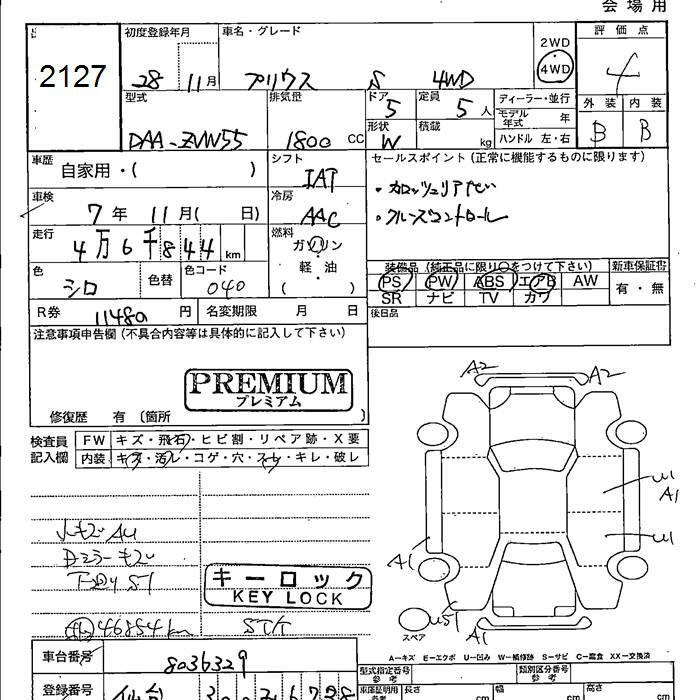 会場用
2127
初度登録年月 車名・グレード 2WD 評価点
28 11月 プリウス S 4WD 4WD 4
型式 排気量 ドア 定員 ディーラー・並行 外装 内装
DAA-ZVW55 1800 CC 5 5人 モデル年式 年 B B
形状 W 積載 kg ハンドル 左・右
車歴 自家用・( ) シフト IAT セールスポイント(正常に機能するものに限ります)
車検 7年 11月( 日) 冷房 AAC
・クルーズコントロール
走行 4万6千844km 燃料 ガソリン・軽・油 ( )
装備品(純正品に限り○をつけて下さい) 新車保証書
色 シロ 色替 色カラーコード 040 PS PW ABS エアB AW 有・無
SR ナビ TV カワ
R券 11480円 名変期限 月 日 後日品
注意事項申告欄(不具合内容等は具体的に記入して下さい)
PREMIUM
プレミアム
修復歴 有(箇所 )
検査員記入欄 FW キズ・飛石・ヒビ割・リペア跡・X要
内装 キズ・汚レ・コゲ・穴・スレ・キレ・破レ
A2 A2
W1
A1
W1
A1
U51
A1
スペア
Dミラーキズ
キーロック
KEY LOCK
46854km
A−キズ E−エクボ U−凹み W−補修跡 S−サビ C−腐食 XX−交換済
車台番号 8036329
型式指定番号 参考 類別区分番号 参考
登録番号 仙台
車庫証明用 参考 長さ cm 幅 cm 高さ cm